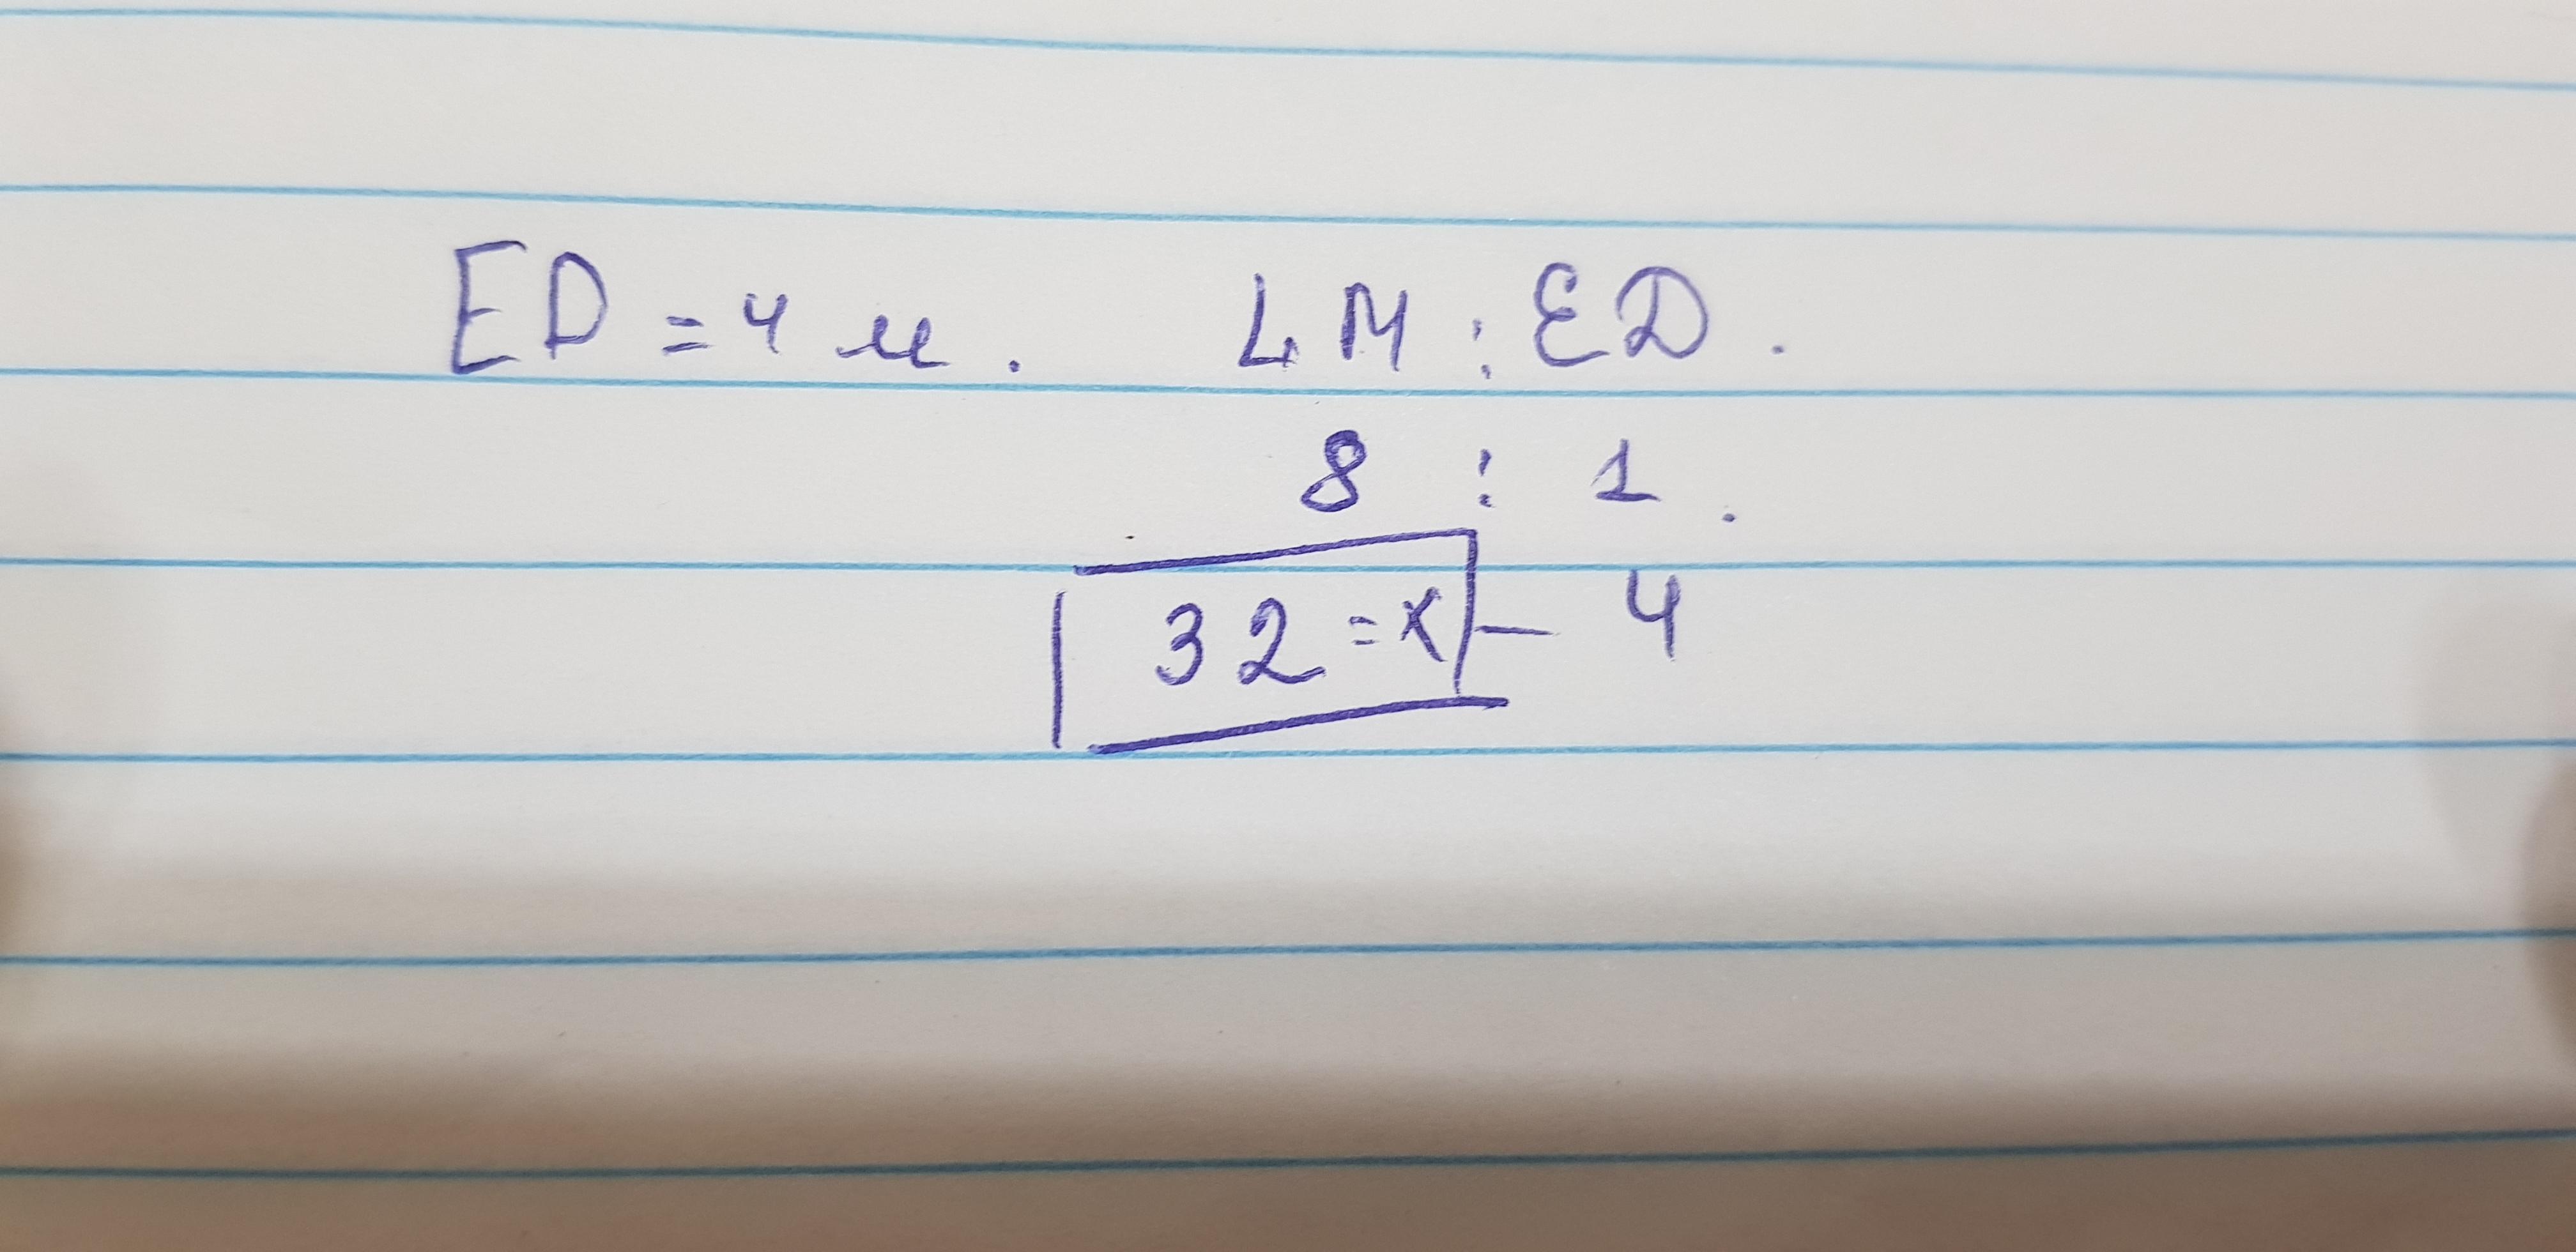 ED = 4 u. LM : ED.
8 : 1.
32 = x — 4